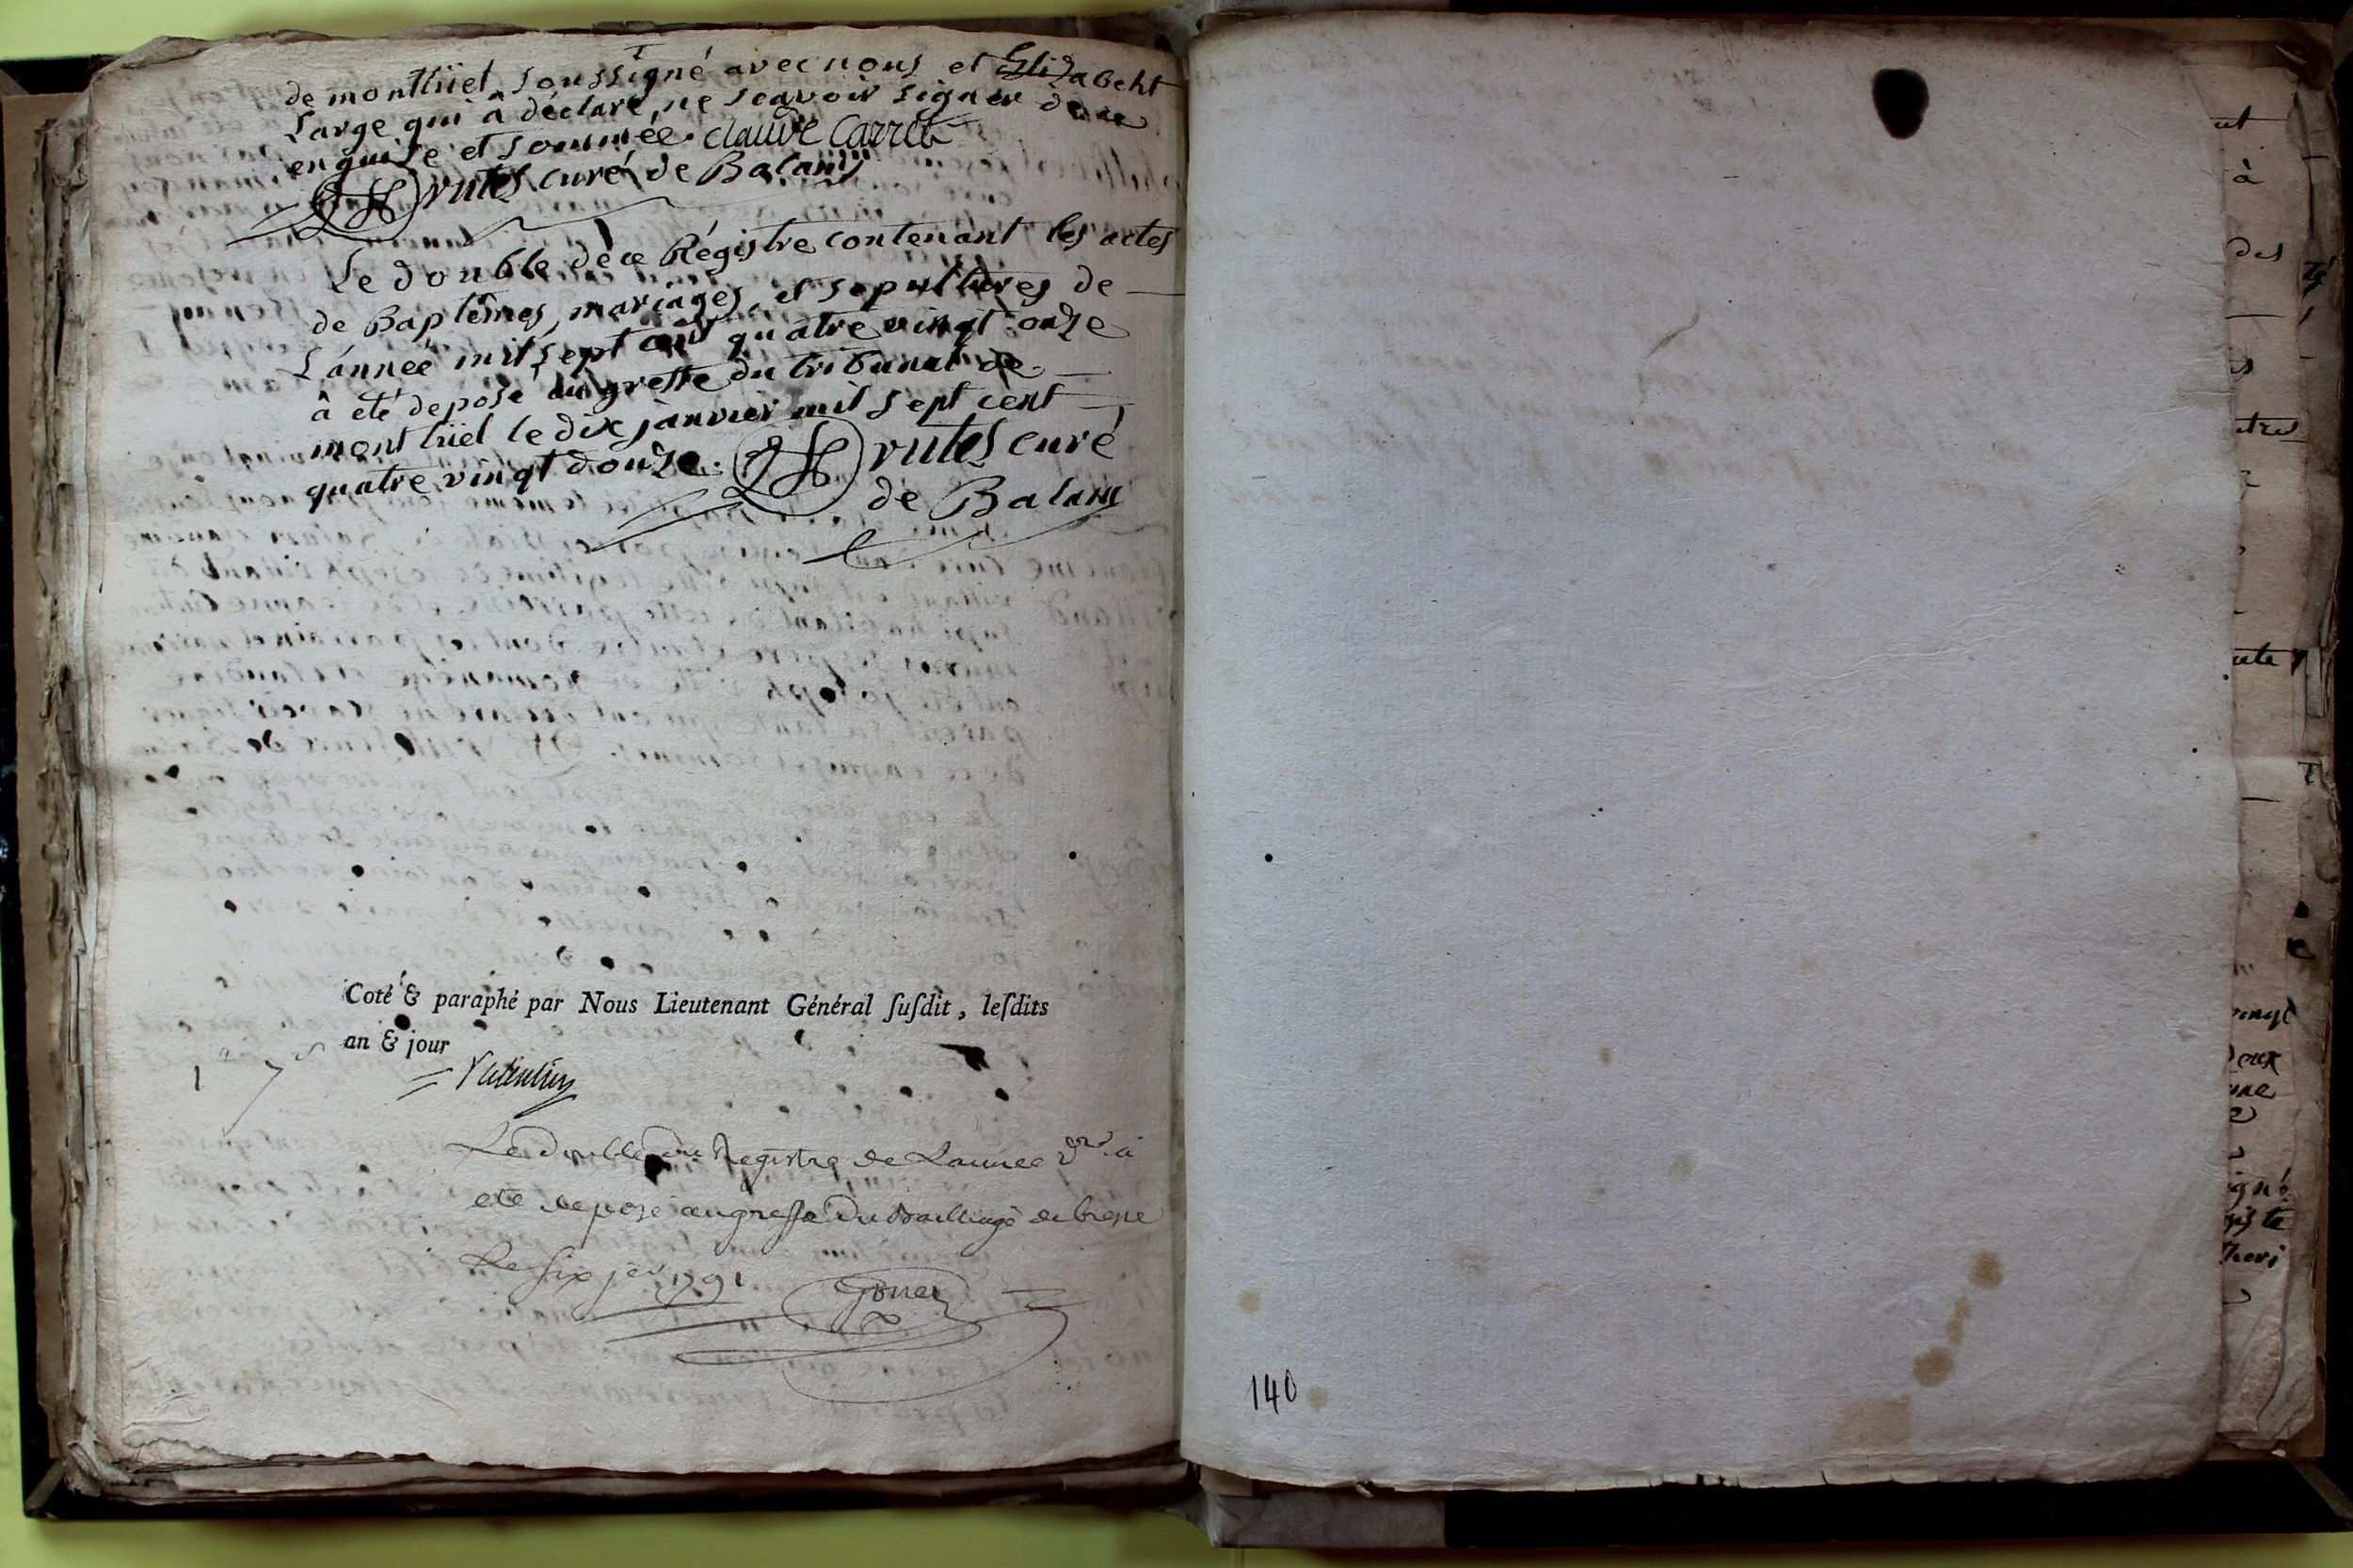 de montlüel soussigné avec nous et Elizabeht
Large qui à déclaré ne scavoir signer de ce
enquise et sommée. claude Carret
rutes curé de Balans
Le double de ce Régistre contenant les actes
de Baptêmes, mariages, et sepultures de
L'année mil sept cent quatre vingt onze
à été deposé au greffe du tribunal de
montlüel le dix janvier mil sept cent
quatre vingt douze. rutes curé
de Balans
Coté & paraphé par Nous Lieutenant Général ſuſdit, leſdits
an & jour
Le double du Registre de Lannee dre a
eté deposé au greffe du Bailliage de bresse
Le six jer 1791
140